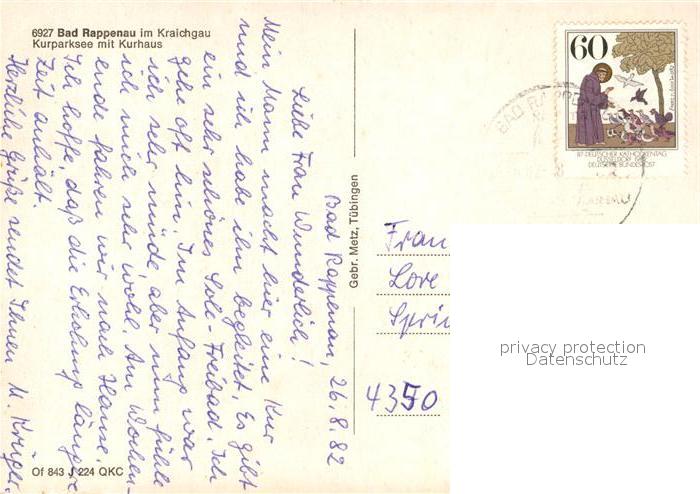 6927 Bad Rappenau im Kraichgau
Kurparksee mit Kurhaus
Bad Rappenau, 26.8.82
Liebe Frau Wunderlich!
Mein Mann macht hier eine Kur
und ich habe ihn begleitet. Es gibt
ein sehr schönes Sole-Freibad. Ich
gehe oft hin. Im Anfang war
ich sehr müde, aber nun fühle
ich mich sehr wohl. Am Wochen-
ende fahren wir nach Hause.
Ich hoffe, daß die Erholung längere
Zeit anhält.
Herzliche Grüße sendet Ihnen M. Krüger
Of 843 J 224 QKC
Gebr. Metz, Tübingen
60
87. DEUTSCHER KATHOLIKENTAG
DÜSSELDORF 1982
DEUTSCHE BUNDESPOST
BAD RAPPENAU
Frau
Lore
Sprin
4350
privacy protection
Datenschutz